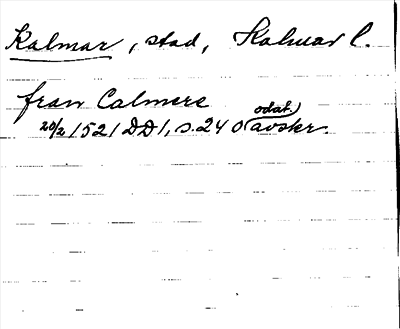 Kalmar, stad, Kalmar l.
fran Calmere
20/2 1521 DD1, s.240 (odat.) avskr.